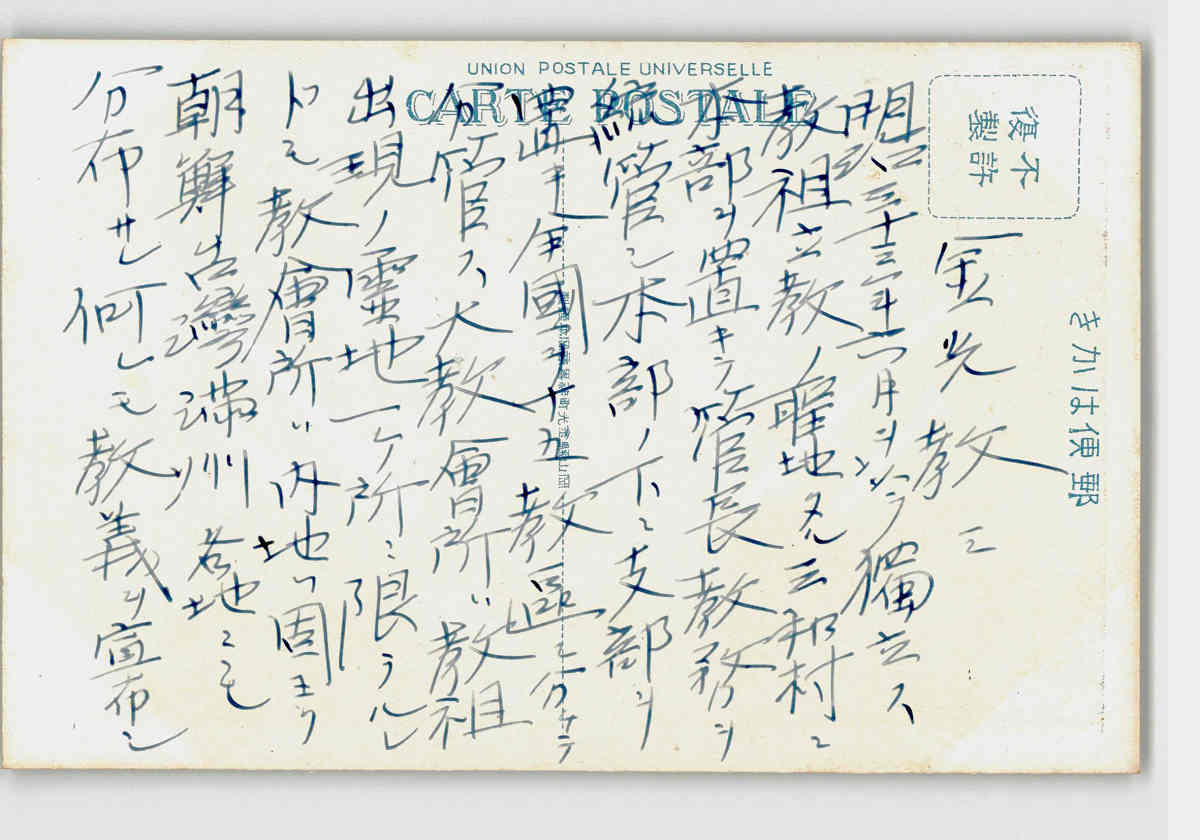 UNION POSTALE UNIVERSELLE
CARTE POSTALE
不許
復製
きかは便郵
金光教 三
明治三十三年六月ヲ以テ獨立ス
教祖立教ノ聖地大谷村ニ
本部ヲ置キテ管長教務ヲ
統管シ本部ノ下ニ支部ヲ
置キ全國ヲ十五教區ニ分ケテ
分管ス、大教會所ハ教祖
出現ノ靈地一ケ所ニ限ラルレ
トモ教會所ハ内地ハ固ヨリ
朝鮮台灣満州各地ニモ
分布サレ何レモ教義ヲ宣布シ